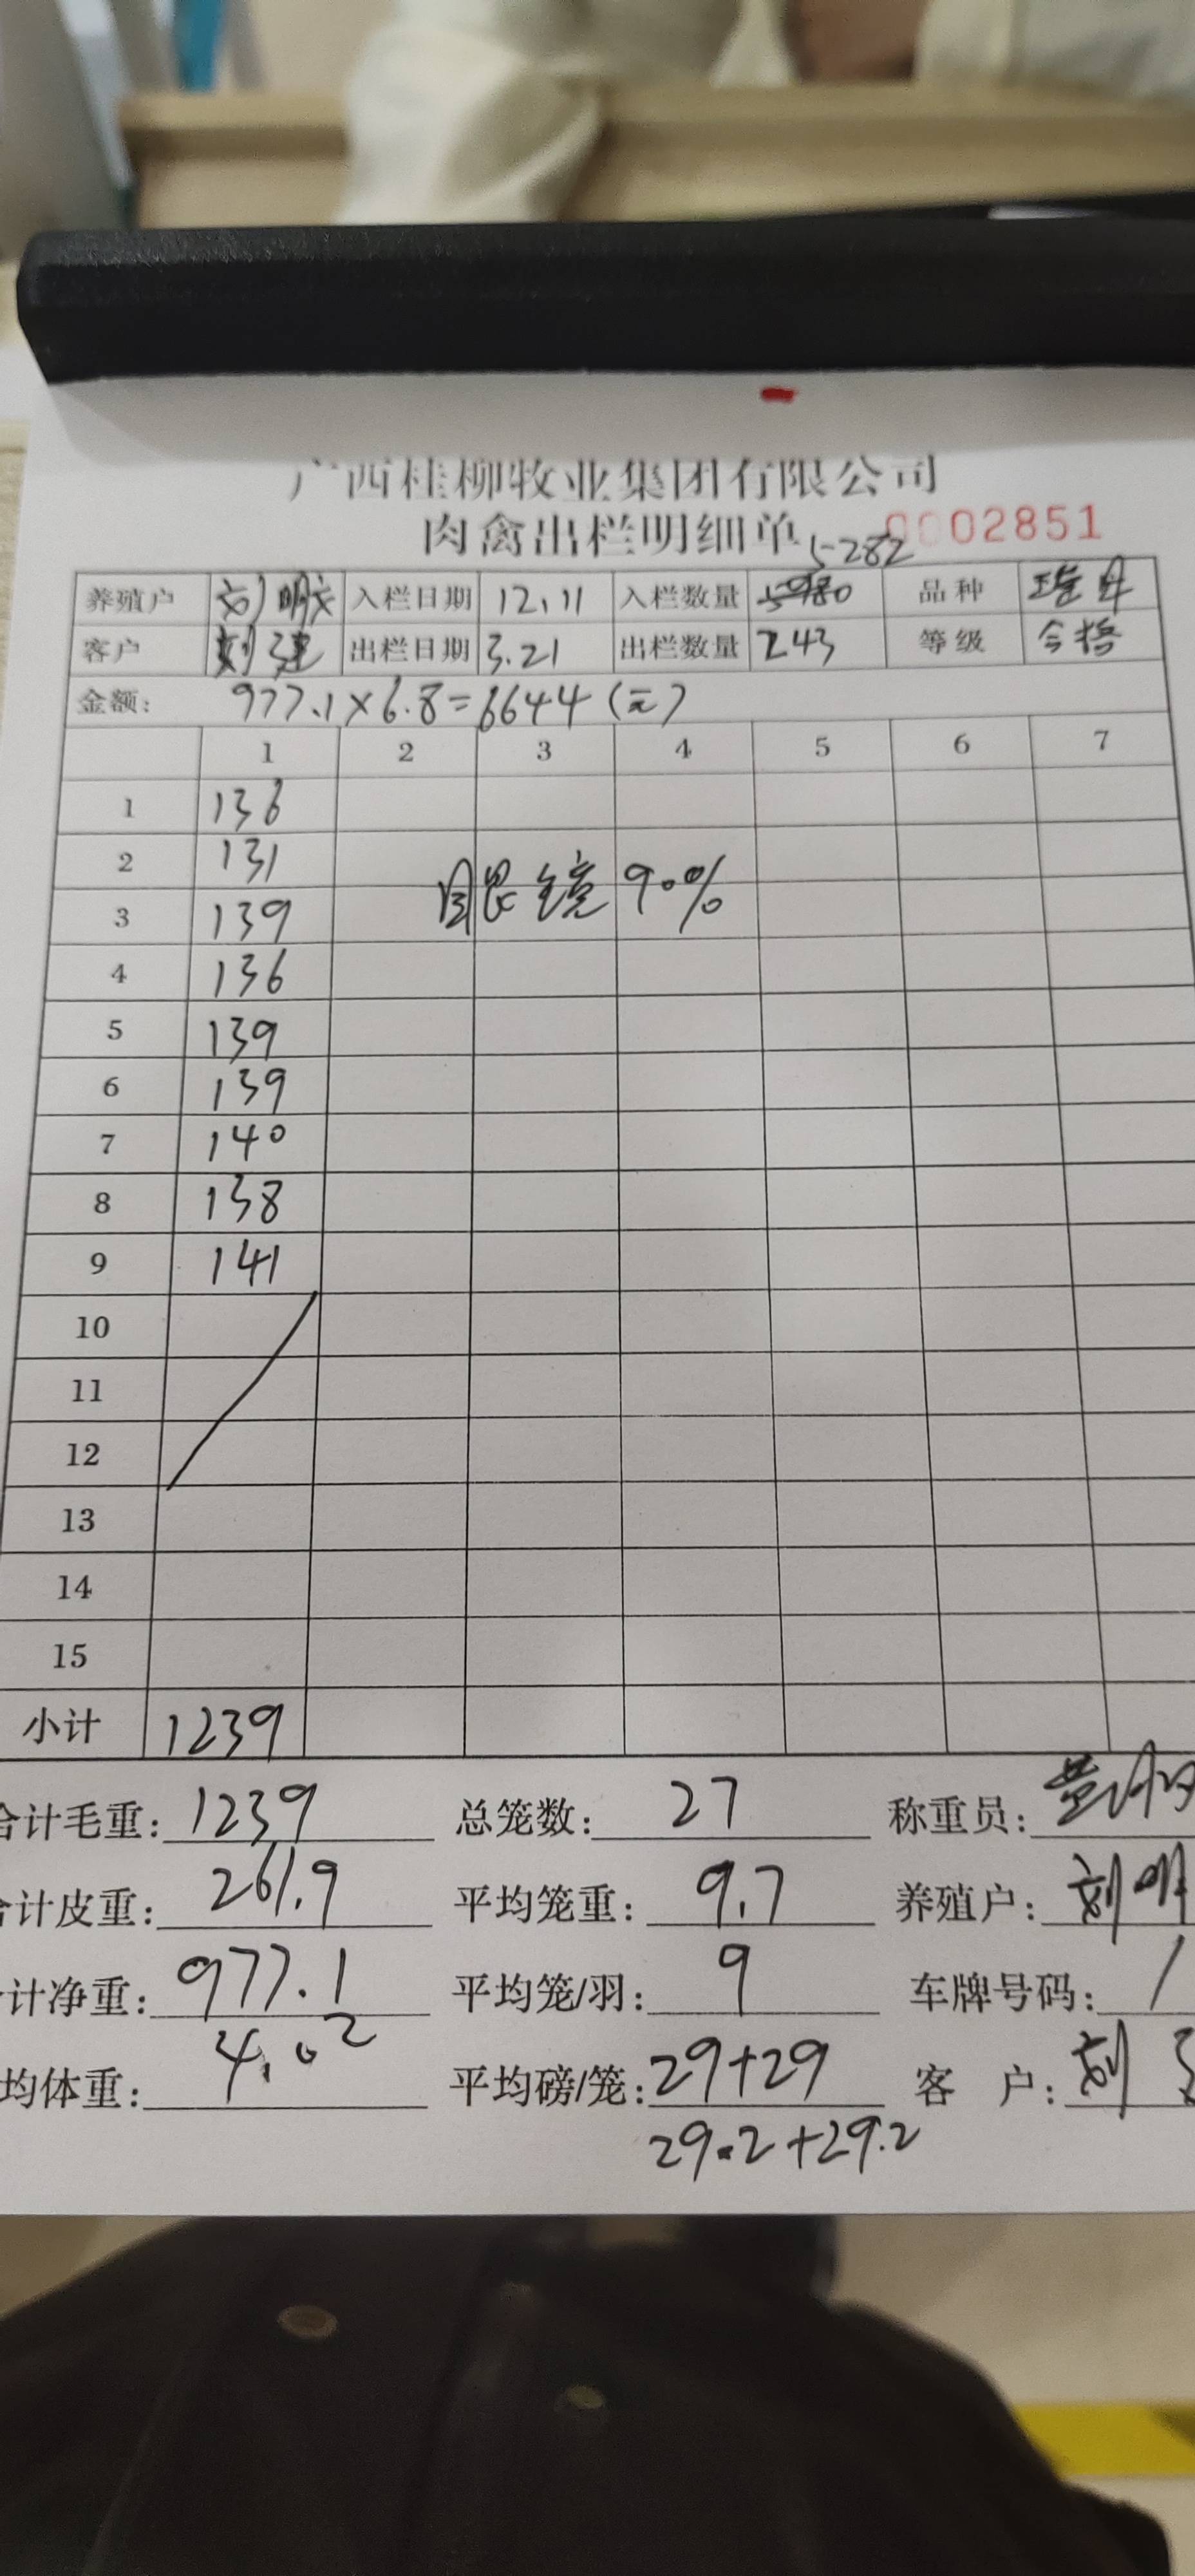 广西桂柳牧业集团有限公司
肉禽出栏明细单 0002851
5282
养殖户 刘明 入栏日期 12.11 入栏数量 品种
客户 刘建 出栏日期 3.21 出栏数量 243 等级 合格
金额: 977.1×6.8=6644(元)
1 2 3 4 5 6 7
1 136
2 131
眼镜 90%
3 139
4 136
5 139
6 139
7 140
8 138
9 141
10
11
12
13
14
15
小计 1239
合计毛重: 1239 总笼数: 27 称重员: 黄
合计皮重: 261.9 平均笼重: 9.7 养殖户: 刘明
计净重: 977.1 平均笼/羽: 9 车牌号码: /
均体重: 4.02 平均磅/笼: 29+29 客 户: 刘
29.2+29.2